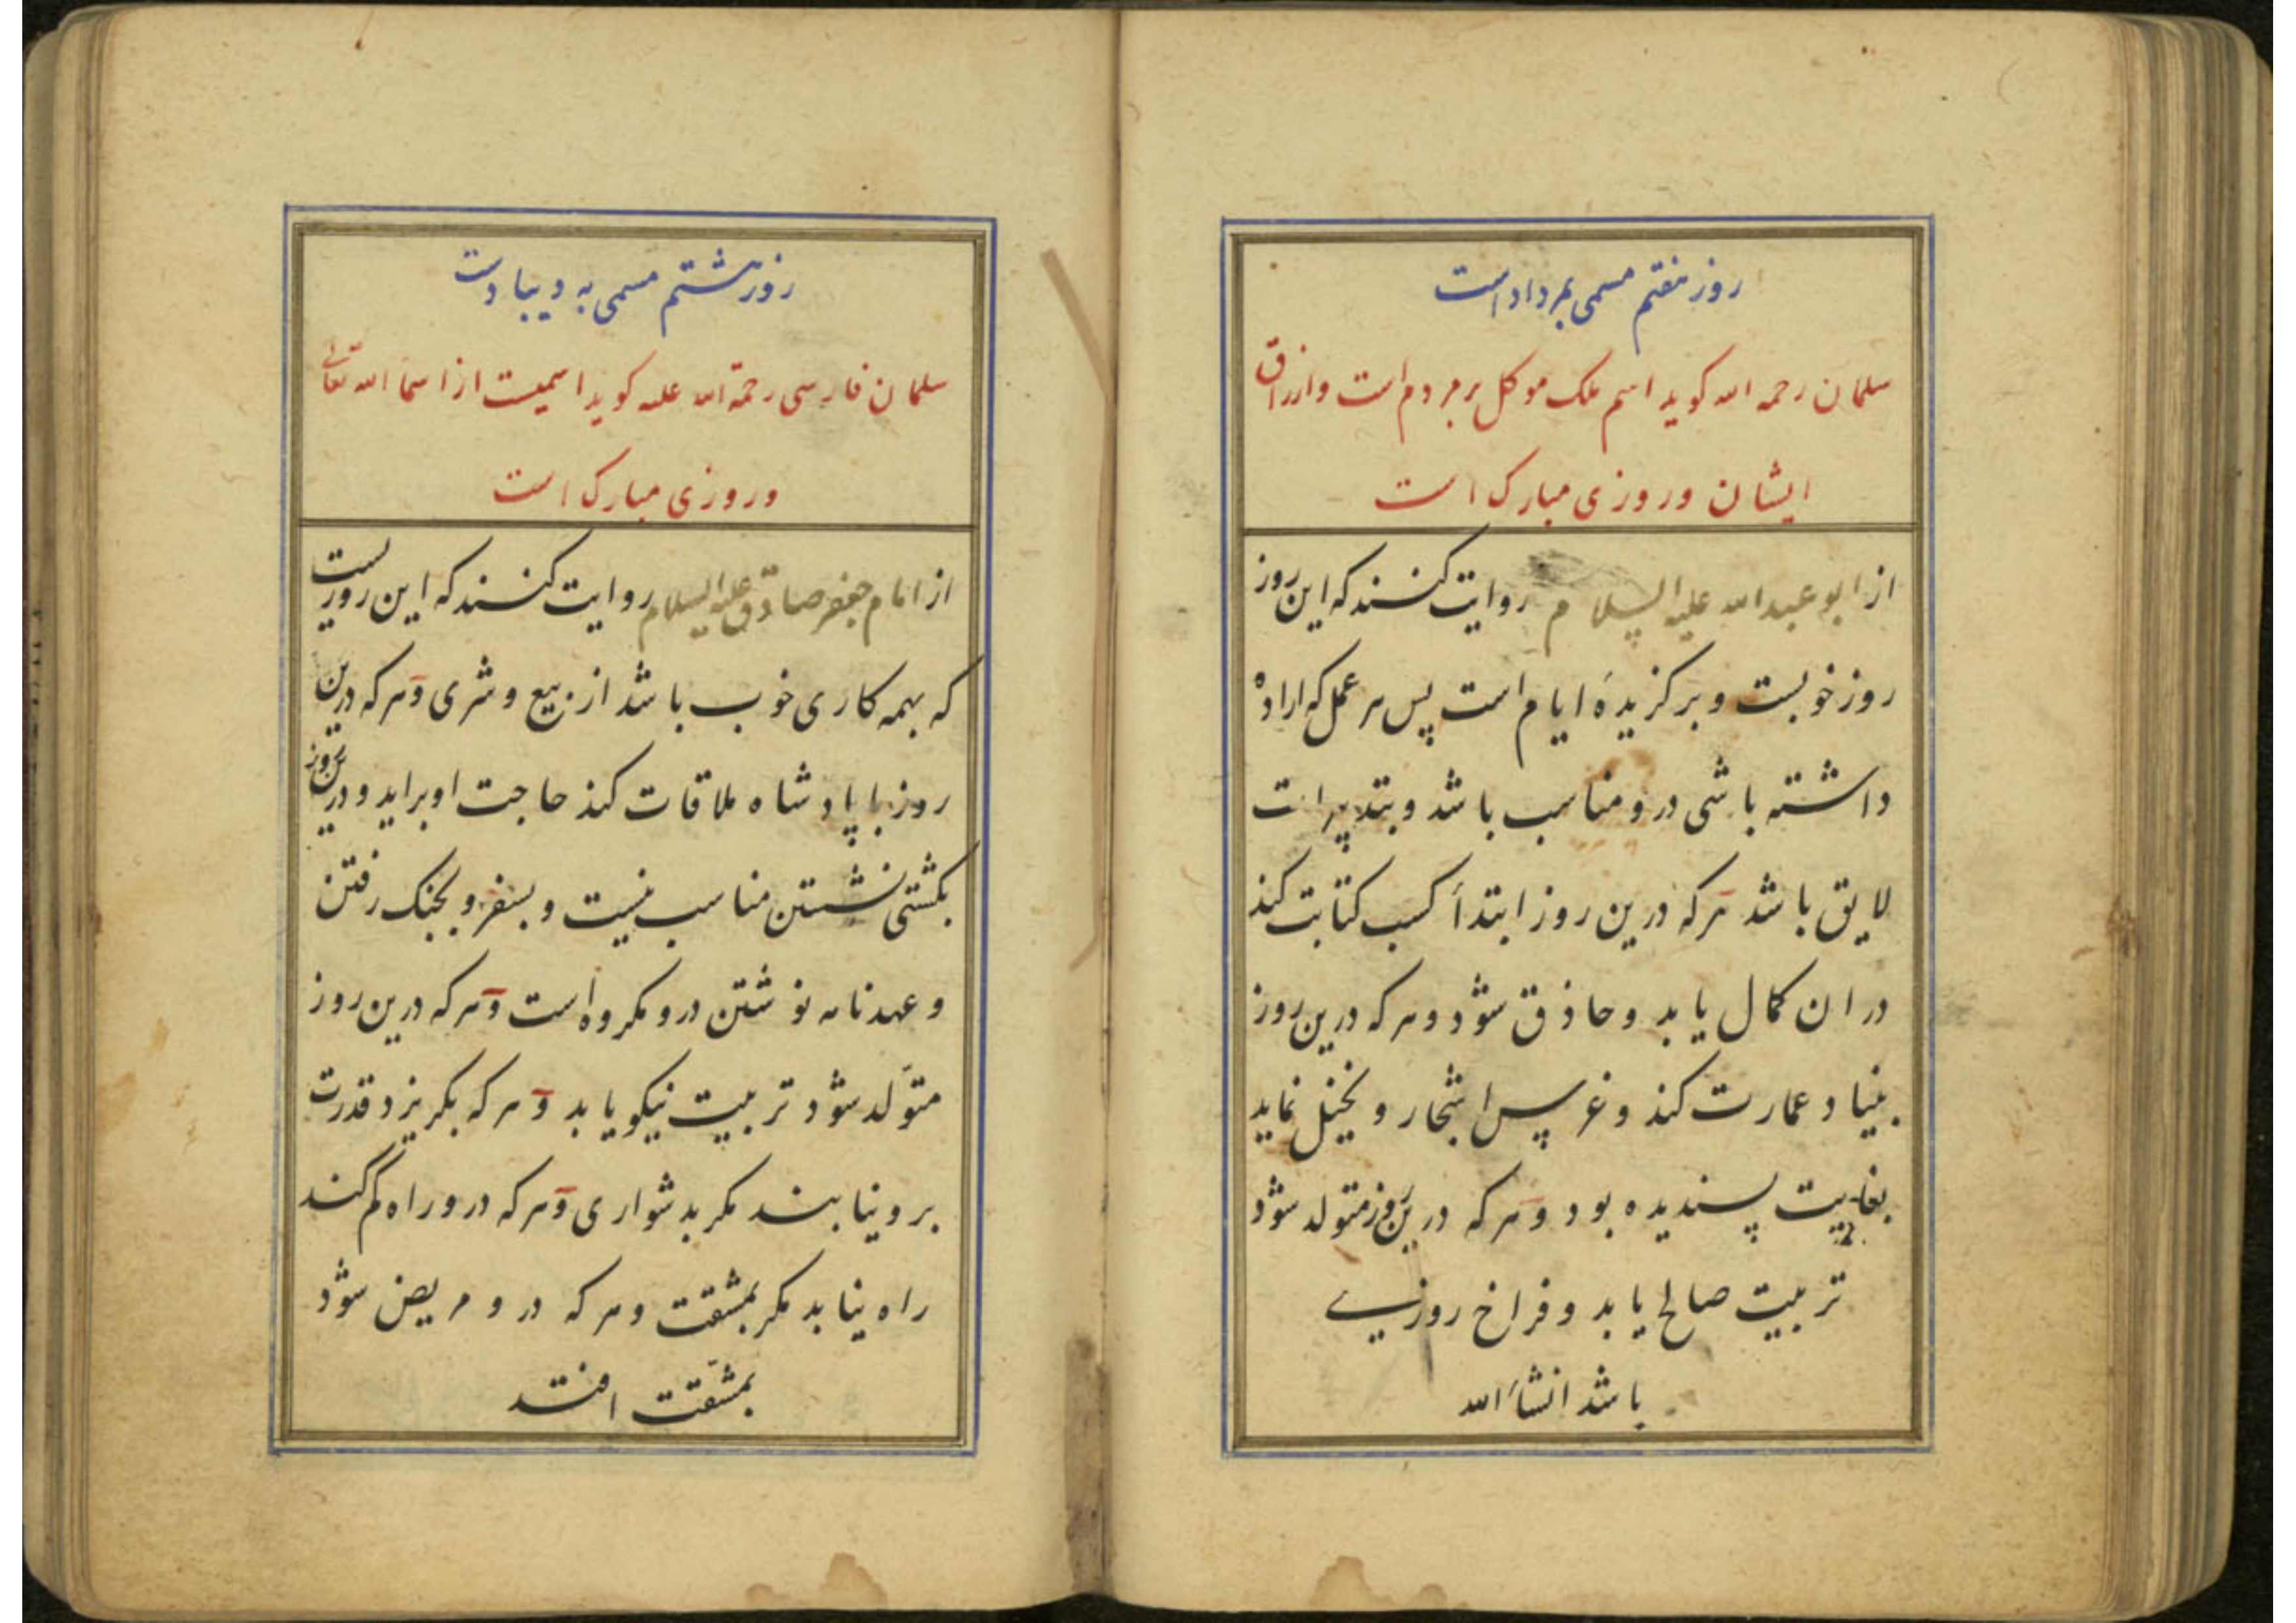 روز هفتم مسمی بمرداد است
سلمان رحمه الله کوید اسم ملک موکل بر مردم است وارزاق
ایشان و روزی مبارک است
از ابو عبدالله علیه السلام روایت کنند که این روز
روز خوبست و برکزیدهٔ ایام است پس هر عمل که اراده
داشته باشی درو مناسب باشد و بتدبیرات
لایق باشد هر که درین روز ابتدأ کسب کتابت کند
در ان کمال یابد و حاذق شود و هر که درین روز
بنیاد عمارت کند و غرس اشجار و نخیل نماید
بغایت پسندیده بود و هر که درین روز متولد شود
تربیت صالح یابد و فراخ روزی
باشد انشاءالله
روز هشتم مسمی به دیبادست
سلمان فارسی رحمة الله علیه کوید اسمیست از اسمآ الله تعالی
و روزی مبارک است
از امام جعفر صادق علیه السلام روایت کنند که این روزیست
که بهمه کاری خوب باشد از بیع و شری و هر که درین
روز با پادشاه ملاقات کند حاجت او براید و درین روز
بکشتی نشستن مناسب نیست و بسفر و بجنک رفتن
و عهدنامه نوشتن درو مکروه است و هر که درین روز
متولّد شود تربیت نیکو یابد و هر که بکریزد قدرت
برو نیابند مکر بدشواری و هر که درو راه کم کند
راه نیابد مکر بمشقت و هر که درو مریض شود
بمشقّت افتد